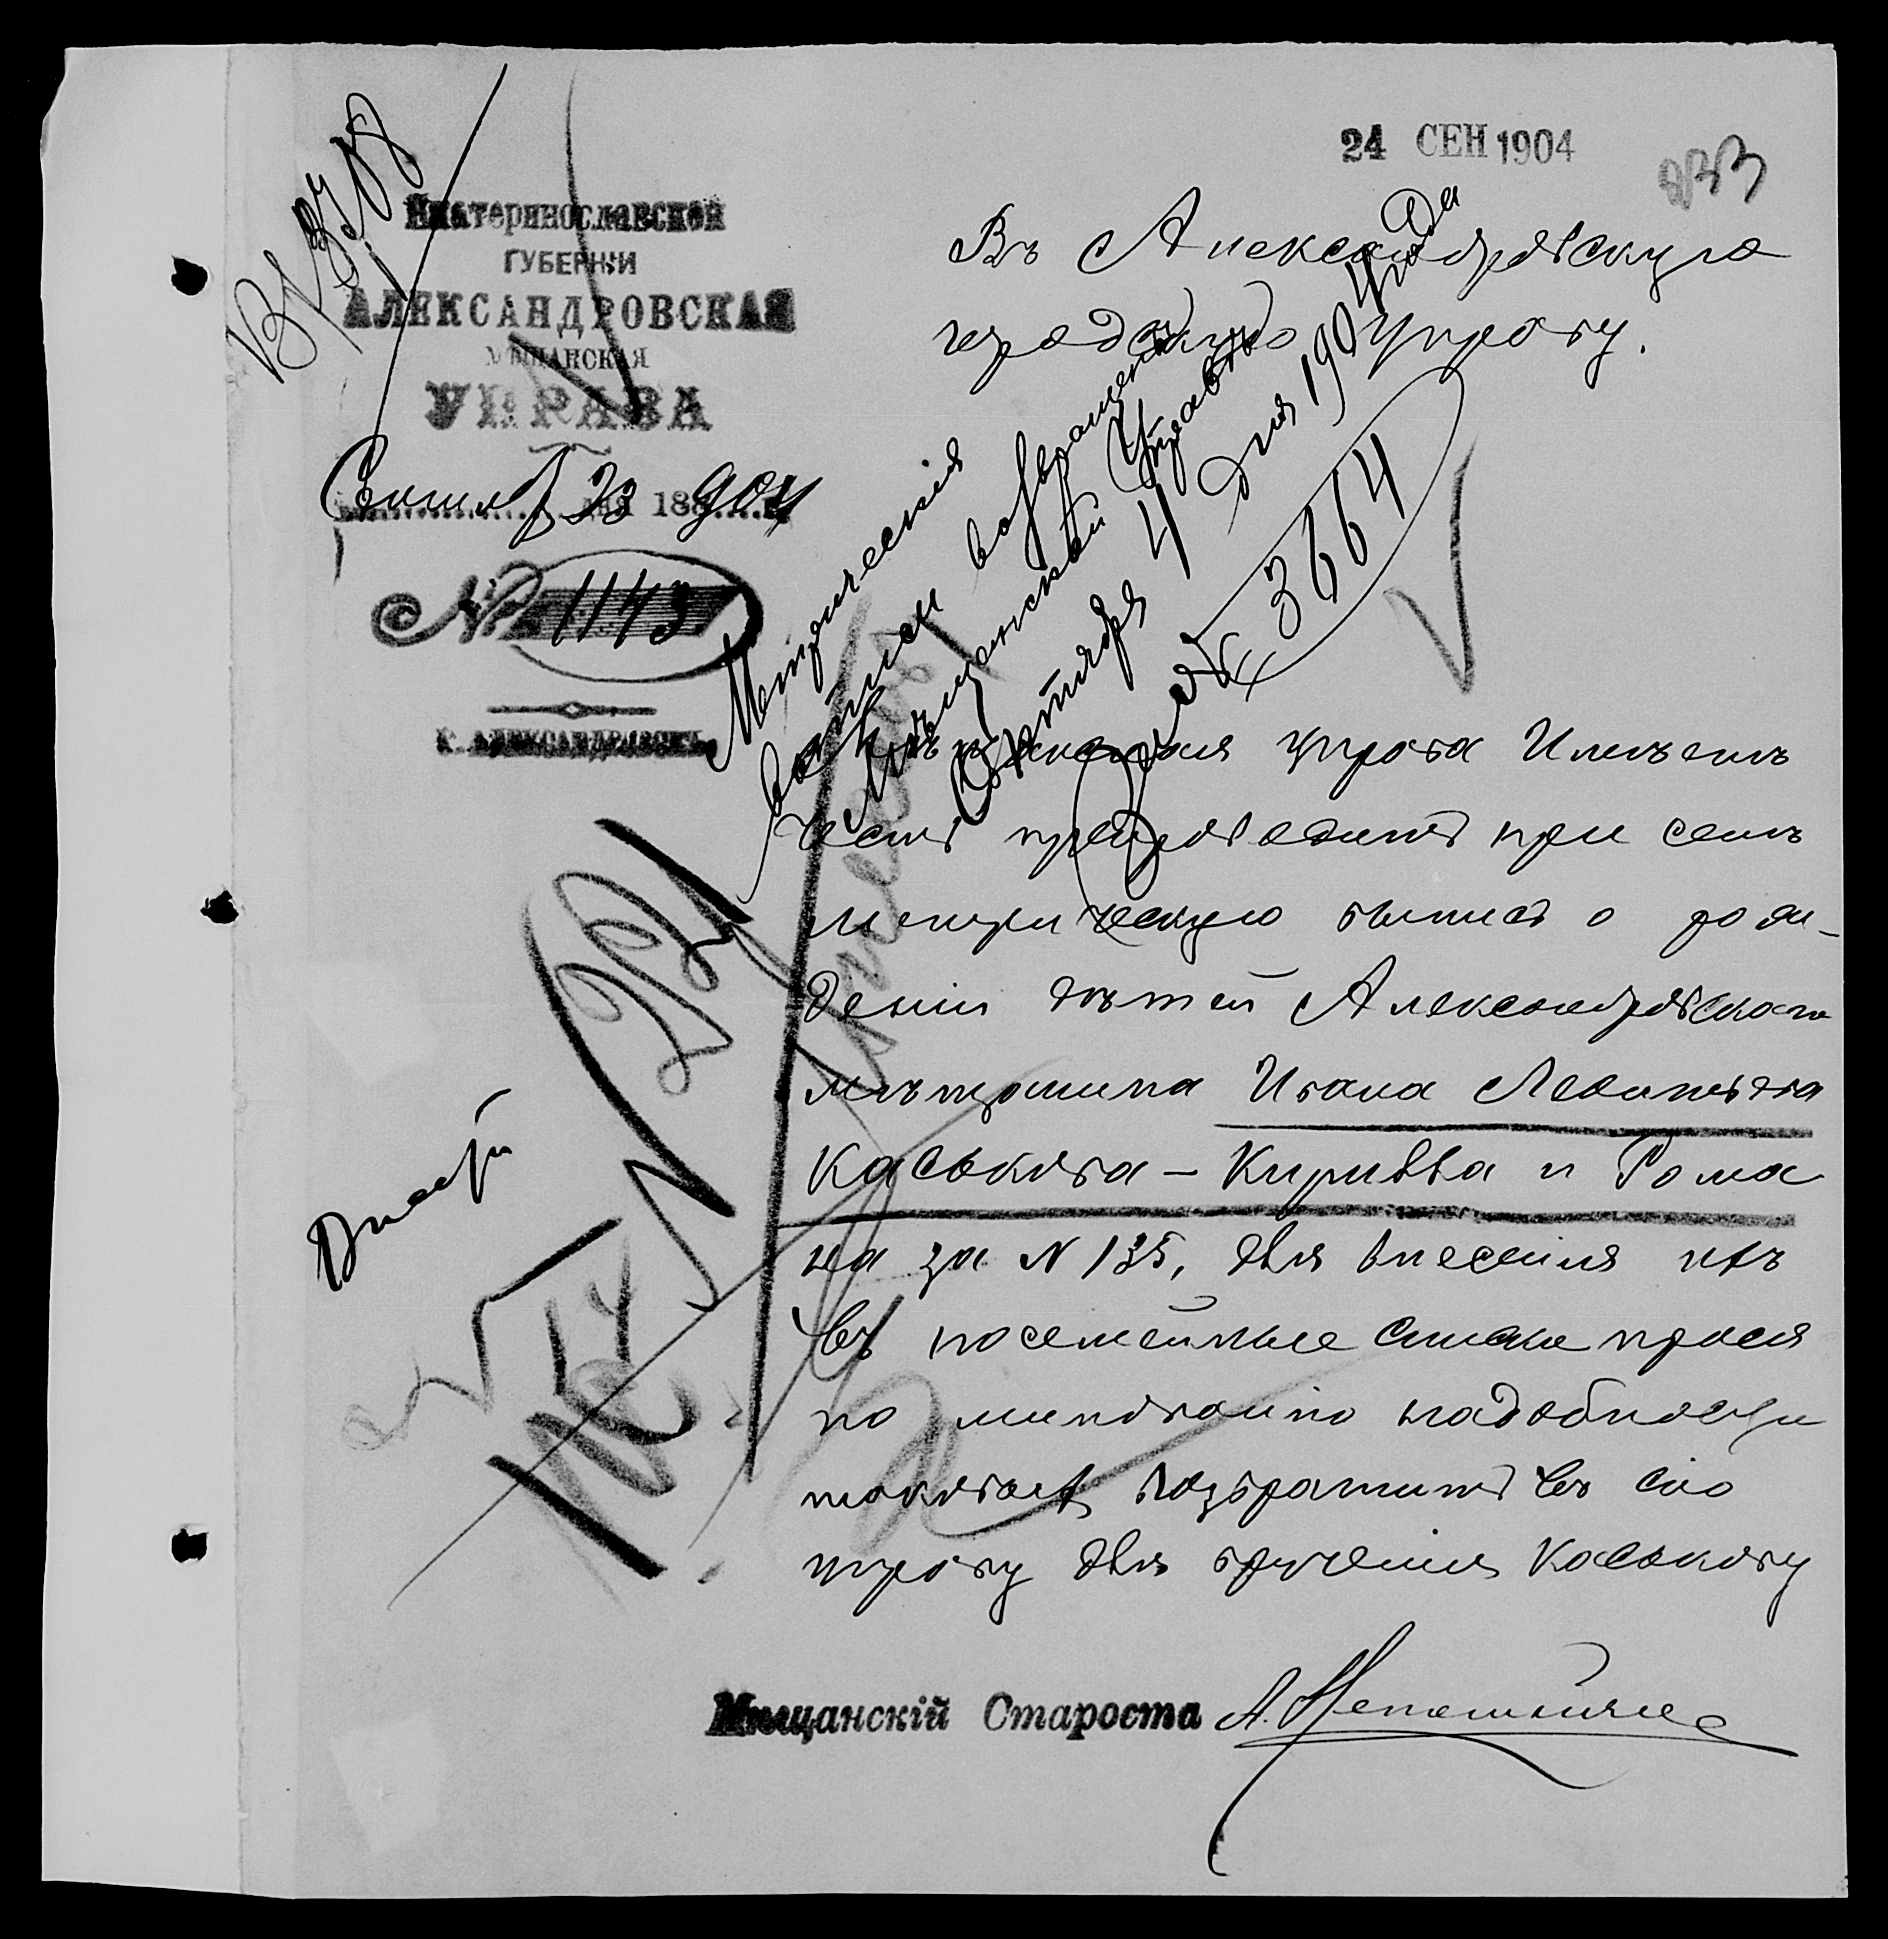 24 СЕН 1904
Екатеринославской
ГУБЕРНІИ
АЛЕКСАНДРОВСКАЯ
МѢЩАНСКАЯ
УПРАВА
23 дня 188 904
№ 1143
Г. АЛЕКСАНДРОВСКЪ
Въ Александровскую
городскую управу.
Метрическія
выписи возвращены
Мѣщанской Управѣ
Октября 4 дня 1904 года
№ 3664
Мѣщанская управа Имѣетъ
честь препроводить при семъ
метрическую выпись о рож-
деніи дѣтей Александровскаго
мѣщанина Ивана Леонтьева
Каськова – Кирилла и Рома
на за № 135, для внесенія ихъ
въ посемейные списки прося
по минованію надобности
таковые возвратить въ сію
управу для врученія Каськову
Мѣщанскій Староста